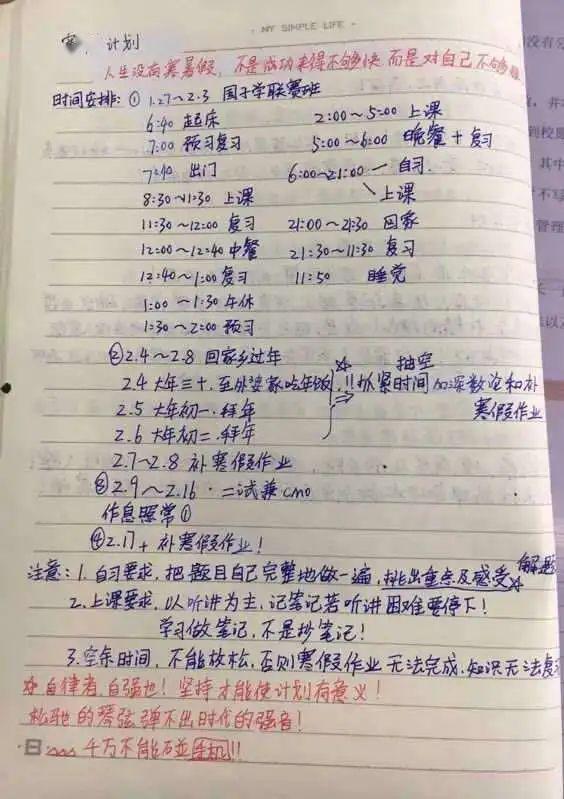 MY SIMPLE LIFE
计划
人生没有寒暑假，不是成功来得不够快 而是对自己不够狠
时间安排：① 1.27～2.3 国子学联赛班
6:40 起床 2:00～5:00 上课
7:00 预习复习 5:00～6:00 晚餐+复习
7:40 出门 6:00～21:00 自习
8:30～11:30 上课 上课
11:30～12:00 复习 21:00～21:30 回家
12:00～12:40 中餐 21:30～11:30 复习
12:40～1:00 复习 11:50 睡觉
1:00～1:30 午休
1:30～2:00 预习
② 2.4～2.8 回家乡过年
2.4 大年三十，至外婆家吃年饭 抽空
!! 抓紧时间 加深数论和补
2.5 大年初一，拜年 寒假作业
2.6 大年初二，拜年
2.7～2.8 补寒假作业
③ 2.9～2.16 · 二试兼cmo
作息照常①
④ 2.17+ 补寒假作业！
注意：1. 自习要求，把题目自己完整地做一遍，挑出重点及感受 解题
2. 上课要求，以听讲为主，记笔记若听讲困难要停下！
学习做笔记，不是抄笔记！
3. 空余时间，不能放松，否则寒假作业无法完成，知识无法复
自律者，自强也！坚持才能使计划有意义！
松驰的琴弦弹不出时代的强音！
千万不能碰手机!!
没有
并
到校
其中
不写
管理
以